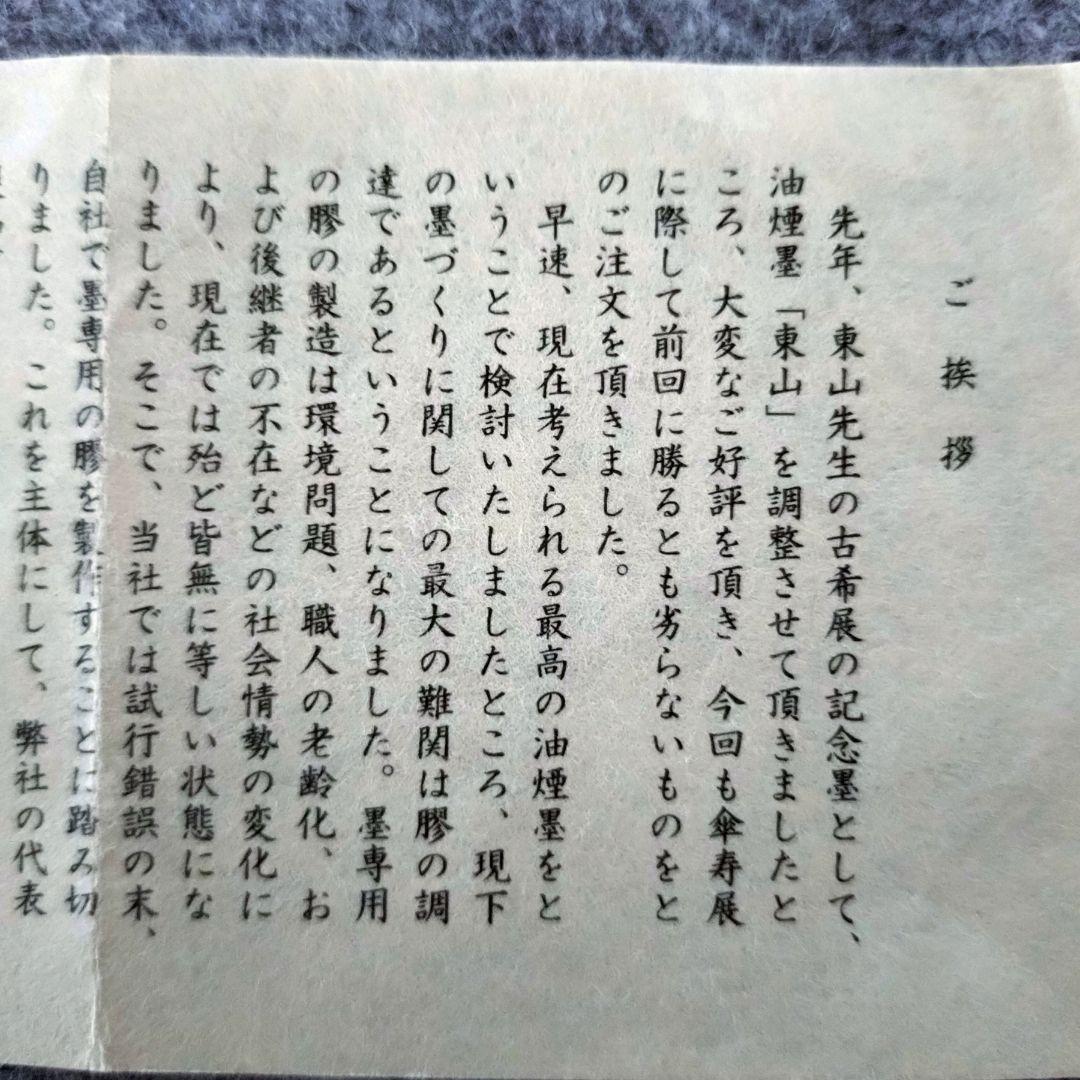 ご挨拶
先年、東山先生の古希展の記念墨として、
油煙墨「東山」を調整させて頂きましたと
ころ、大変なご好評を頂き、今回も傘寿展
に際して前回に勝るとも劣らないものをと
のご注文を頂きました。
早速、現在考えられる最高の油煙墨をと
いうことで検討いたしましたところ、現下
の墨づくりに関しての最大の難関は膠の調
達であるということになりました。墨専用
の膠の製造は環境問題、職人の老齢化、お
よび後継者の不在などの社会情勢の変化に
より、現在では殆ど皆無に等しい状態にな
りました。そこで、当社では試行錯誤の末、
自社で墨専用の膠を製作することに踏み切
りました。これを主体にして、弊社の代表